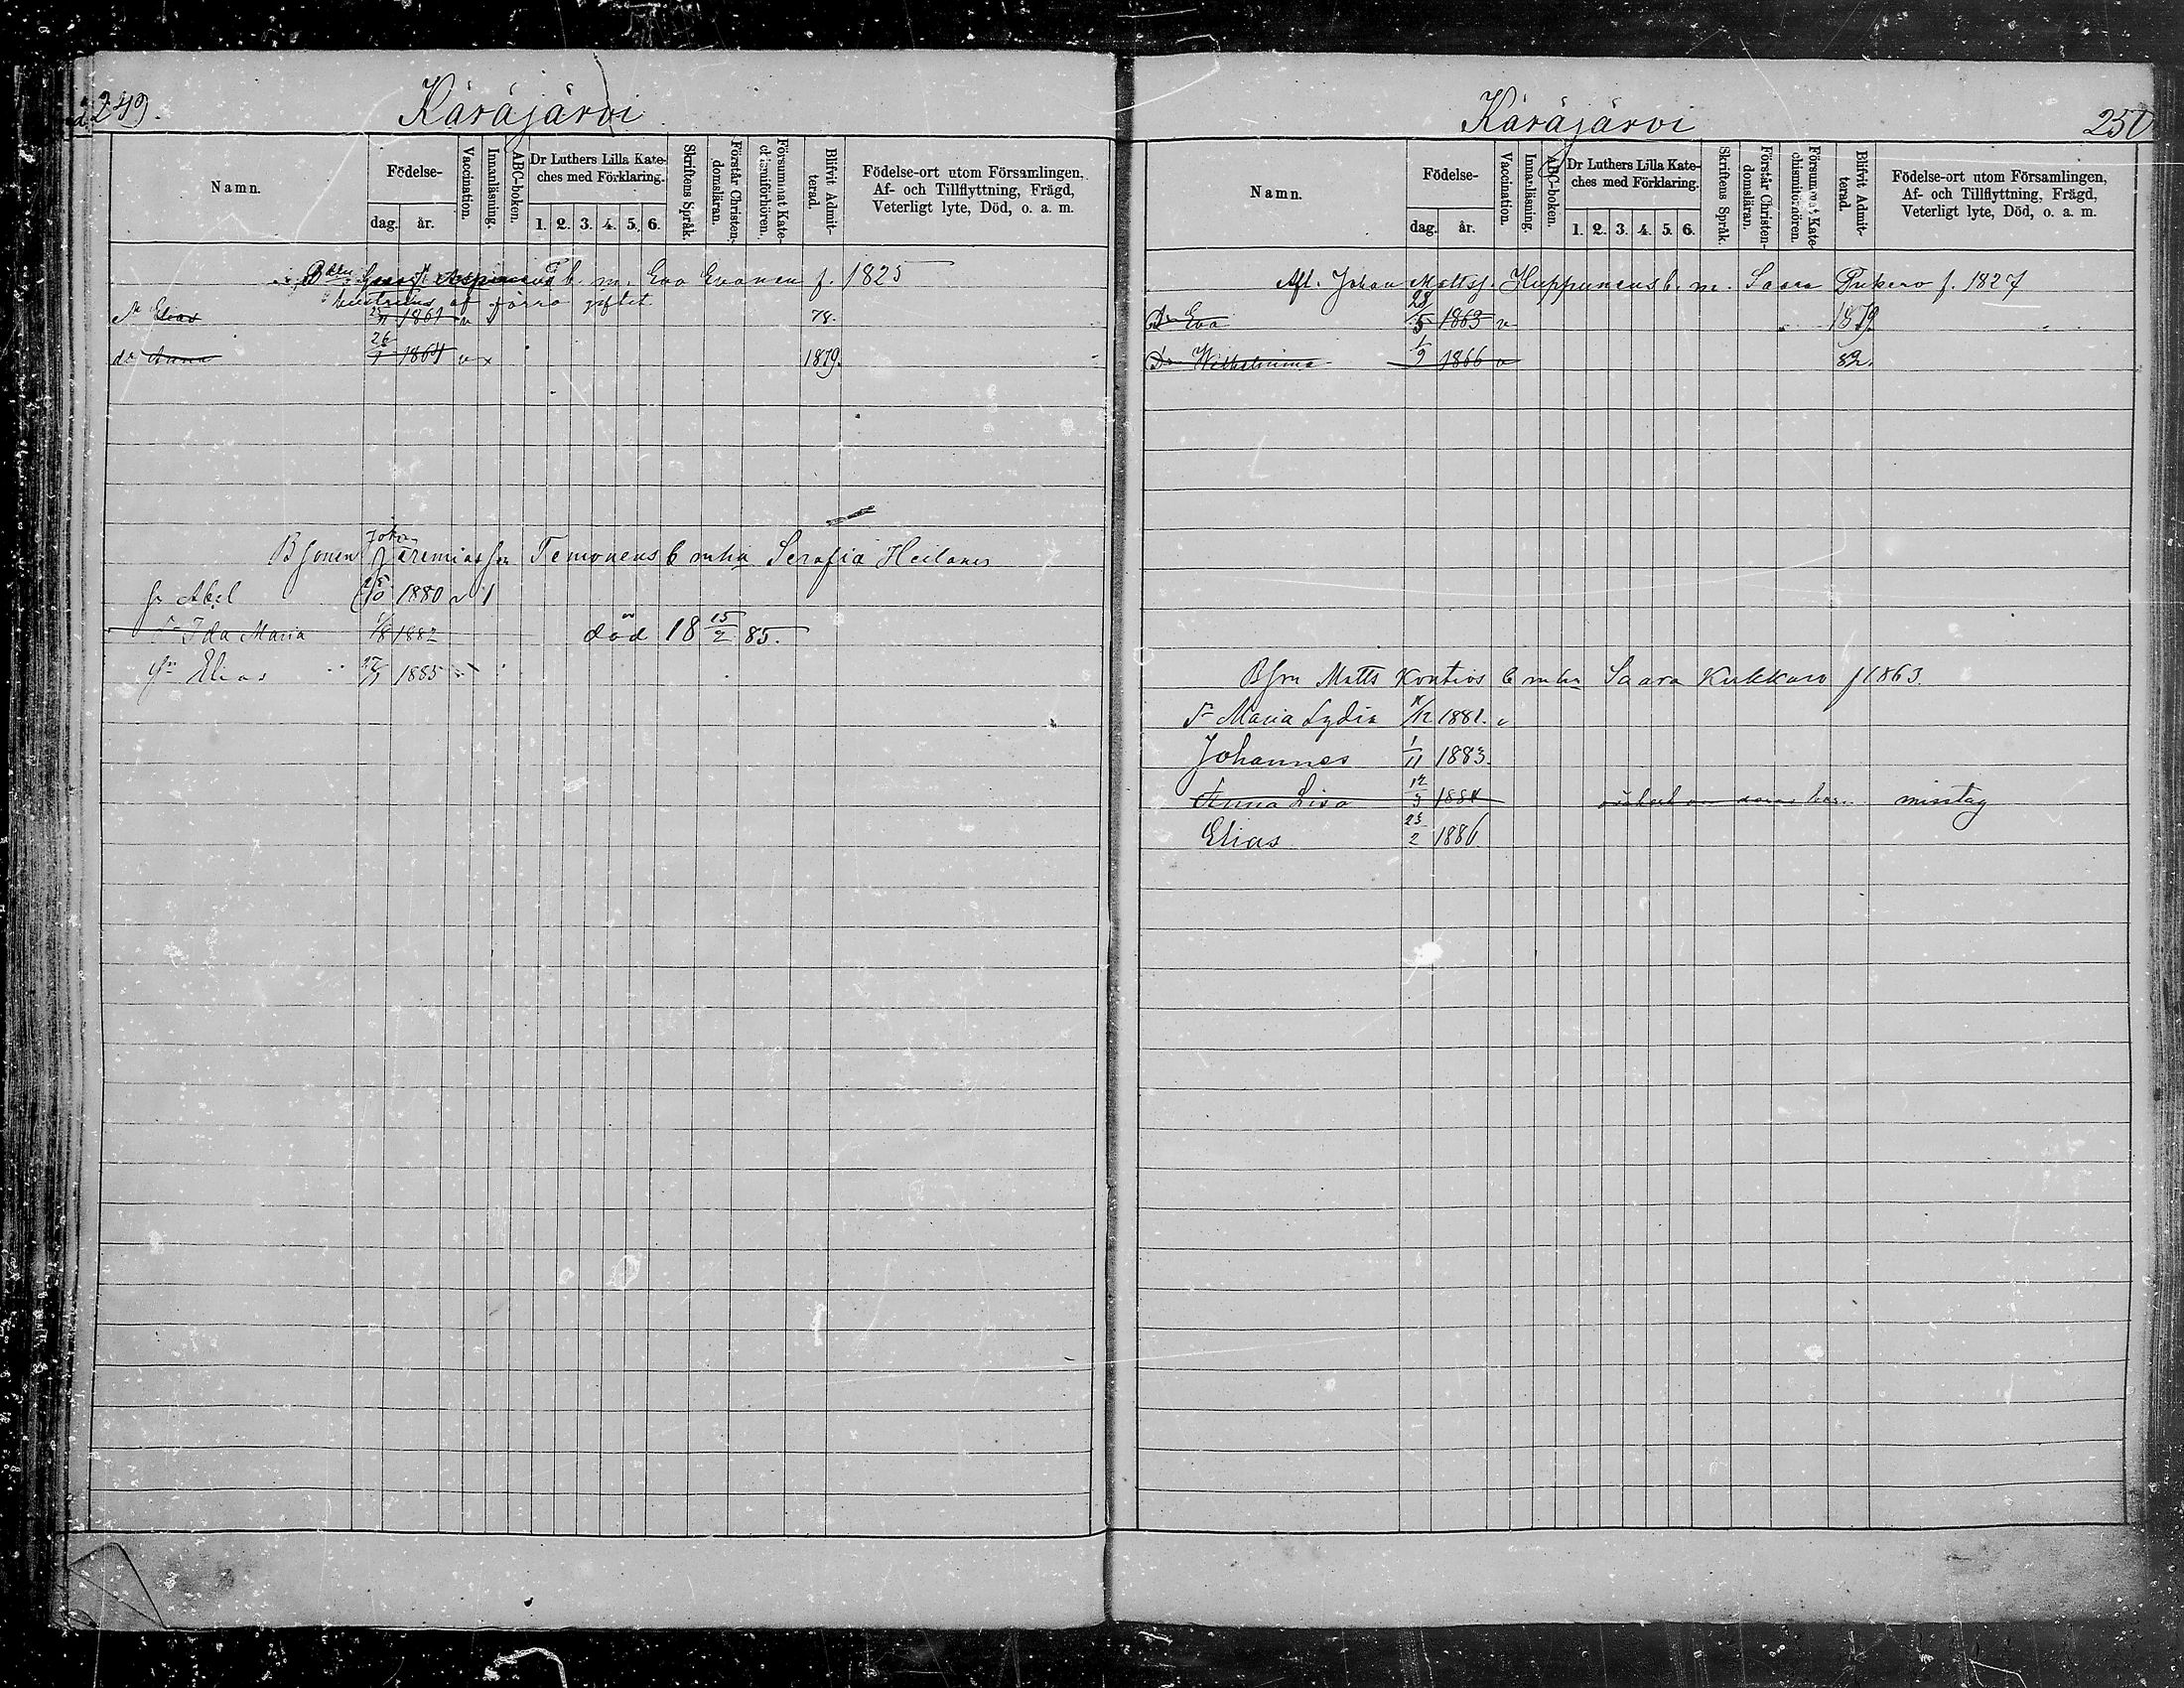 249.
Käräjärvi
Namn.
Födelse-
dag.
år.
Vaccination.
Innanläsning.
ABC-boken.
Dr Luthers Lilla Kate-
ches med Förklaring.
1. 2. 3. 4. 5. 6.
Skriftens Språk.
Förstår Christen-
domsläran.
Försummat Kate-
chismiförhören.
Blifvit Admit-
terad.
Födelse-ort utom Församlingen,
Af- och Tillflyttning, Frägd,
Veterligt lyte, Död, o. a. m.
b. m. Eva Evanen f. 1825
hustruns af förra giftet
Elias 1861 v 78.
dr Anna 26/1 1864 v x 1879.
Johan
Bsonen Jeremiasson Temonens b mha Serafia Heilanen
sn Abel 1880 v 1
dr Ida Maria 1/8 1882 död 18 15/2 85.
sn Elias 1885
Käräjärvi
250
Namn.
Födelse-
dag.
år.
Vaccination.
Innanläsning.
ABC-boken.
Dr Luthers Lilla Kate-
ches med Förklaring.
1. 2. 3. 4. 5. 6.
Skriftens Språk.
Förstår Christen-
domsläran.
Försummat Kate-
chismiförhören.
Blifvit Admit-
terad.
Födelse-ort utom Församlingen,
Af- och Tillflyttning, Frägd,
Veterligt lyte, Död, o. a. m.
Afl. Johan Mattss. Huppunens b. m. Saara Pukero f. 1827
Dr Eva 28/5 1863 v 1879
Dr Wilhelmina 1/9 1866 v 82.
Bson Matts Kontios b mha Saara Kukkaro f 1863.
dr Maria Lydia /12 1881. v
Johannes 1/11 1883.
Anna Lisa 12/3 1884 misstag
Elias 23/2 1886